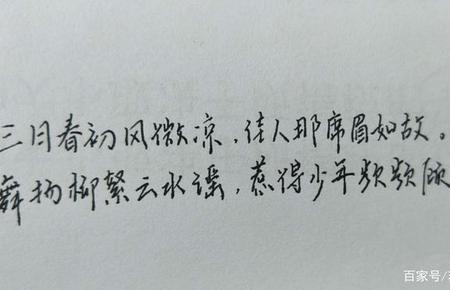 三月春初风微凉，佳人那席眉如故。
舞扬柳絮云水谣，惹得少年频频顾
百家号/